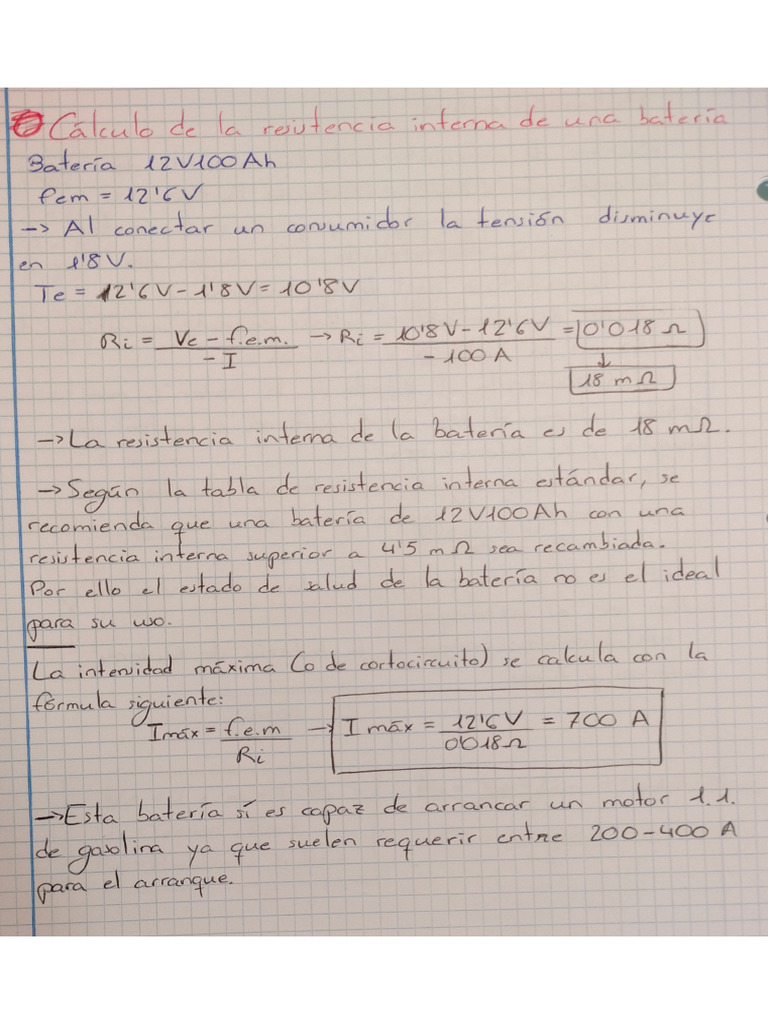 Cálculo de la resistencia interna de una batería
Batería 12V100Ah
fem = 12'6V
→ Al conectar un consumidor la tensión disminuye
en 1'8V.
Te = 12'6V - 1'8V = 10'8V
Ri = Vc - f.e.m. / - I → Ri = 10'8V - 12'6V / - 100A = 0'018 Ω
↓
18 mΩ
→ La resistencia interna de la batería es de 18 mΩ.
→ Según la tabla de resistencia interna estándar, se
recomienda que una batería de 12V100Ah con una
resistencia interna superior a 4'5 mΩ sea recambiada.
Por ello el estado de salud de la batería no es el ideal
para su uso.
La intensidad máxima (o de cortocircuito) se calcula con la
fórmula siguiente:
Imáx = f.e.m / Ri → I máx = 12'6V / 0'018Ω = 700 A
→ Esta batería sí es capaz de arrancar un motor 1.1.
de gasolina ya que suelen requerir entre 200-400 A
para el arranque.